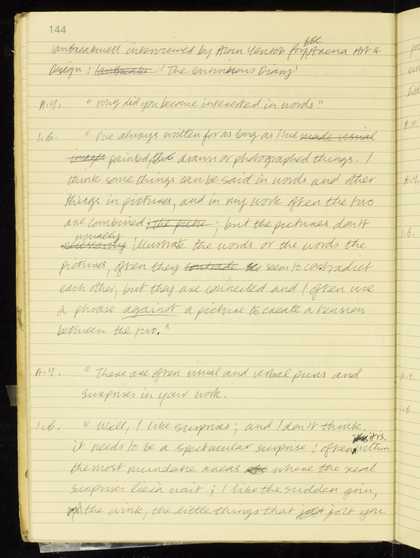 144
Ian Breakwell interviewed by Alvin Yentob for BBC Arena Art &
Design : 'The Continuous Diary'
A.Y. "Why did you become interested in words"
I.B. "I've always written for as long as I've made visual
images painted, drawn or photographed things. I
think some things can be said in words and other
things in pictures, and in my work often the two
are combined ; but the pictures don't
illustrate the words or the words the
pictures, often they seem to contradict
each other, but they are connected and I often use
a phrase against a picture to create a tension
between the two."
A.Y. "There are often visual and verbal puns and
surprises in your work.
I.B. "Well, I like surprises ; and I don't think
it needs to be a spectacular surprise : often it is within
the most mundane areas where the real
surprises lie in wait ; I like the sudden grin,
the wink, the little things that jolt you